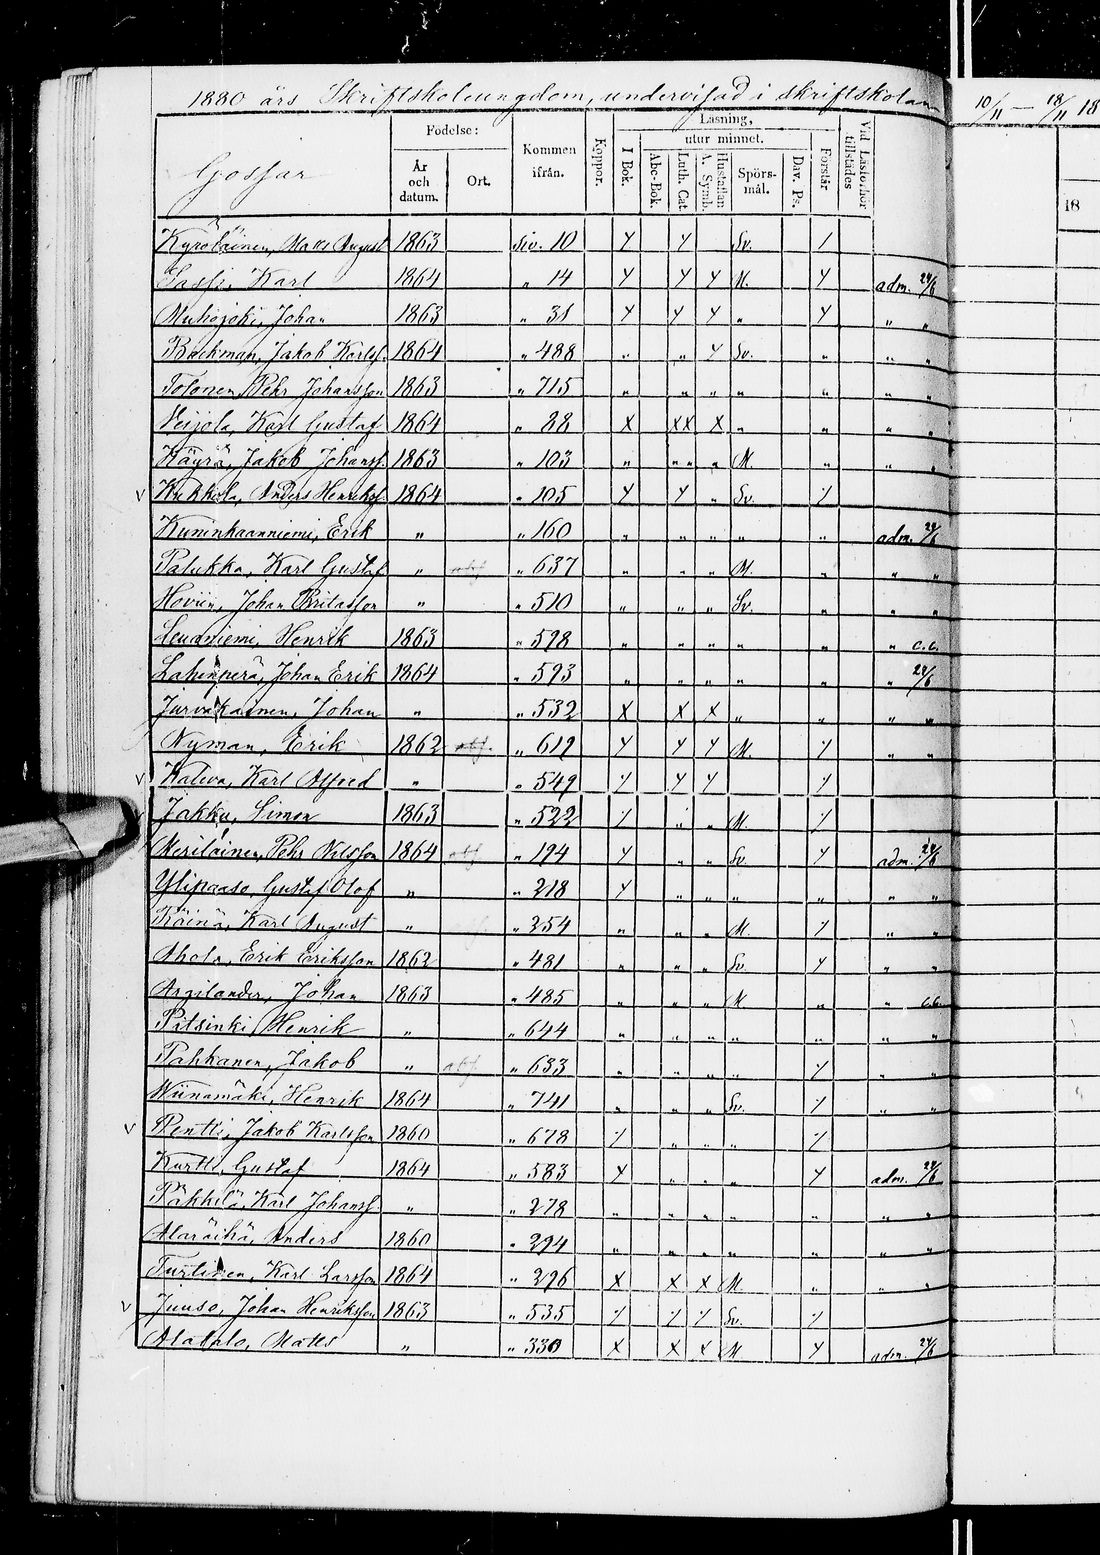 1880 års Skriftskoleungdom, undervisad i skriftskolan 10/11 — 18/11 18
Gossar
Födelse: År och datum. Ort. Kommen ifrån. Koppor. Läsning, I Bok. utur minnet. Abc-Bok. Luth. Cat. Hustaflan A. Symb. Spörs-mål. Dav. Ps. Förstår Vid Läsförhör tillstädes 18
Kyröläinen, Mats August 1863 siv. 10 Y Y Sv. /
Sassi, Karl 1864 " 14 Y Y Y M. Y adm. 24/6
Muhojoki, Johan 1863 " 31 Y Y Y " Y " "
Backman, Jakob Karlss. 1864 " 488 " " Y Sv. " " "
Tolonen, Pehr Johansson 1863 " 715 " " " " " " "
Veijola, Karl Gustaf 1864 " 28 X XX X " " " "
Käyrä, Jakob Johanss. 1863 " 103 " " " " M. " " "
v Kukkola, Anders Henrikss. 1864 " 105 Y Y " Sv. /
Kuninkaanniemi, Erik " " 160 " " " " " adm. 24/6
Palukka, Karl Gustaf " obf " 637 " " " M. " " "
Hoviin, Johan Britasson " " 510 " " " Sv. " " "
Leuaniemi, Henrik 1863 " 598 " " " " " " c.c.
Lahenperä, Johan Erik 1864 " 593 " " " " " " 24/6
Jurvakainen, Johan " " 532 X X X " " " "
Nyman, Erik 1862 obf. " 619 Y Y Y M. / " "
v Kaleva, Karl Alfred " " 549 / Y Y /
Jakku, Simon 1863 " 522 / " " M. /
Meriläinen, Pehr Nilsson 1864 obf " 194 Y " " Sv. Y adm. 24/6
Ylipaaso, Gustaf Olof " " 218 Y " " " " " "
Köinä, Karl August " " 254 " " " M. / " "
Ahola, Erik Eriksson 1862 " 481 " " " Sv. Y " "
Argilander, Johan 1863 " 485 " " " M " " c.c.
Pitsinki, Henrik " " 644 " " " " " " "
Pahkanen, Jakob " obf. " 633 " " " " /
Niinamäki, Henrik 1864 " 741 " " " Sv. / " "
v Pentti, Jakob Karlsson 1860 " 678 / " " " /
Kurtti, Gustaf 1864 " 583 Y " " " Y adm. 24/6
Päkkilä, Karl Johanss. " " 278 " " " " " " "
Alaräihä, Anders 1860 " 294 " " " " " " "
Turtinen, Karl Larsson 1864 " 296 X X X M. " " "
v Juuso, Johan Henriksson 1863 " 535 / / / Sv. /
Alatalo, Mats " " 330 X X X M Y adm. 24/6